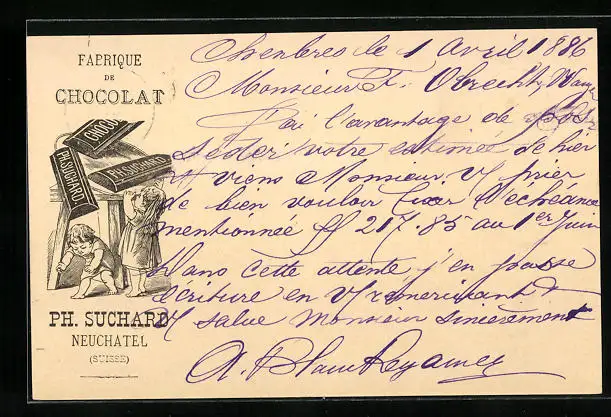 FABRIQUE
DE
CHOCOLAT
CHOCO
PH. SUCHARD.
PH. SUCHARD
PH. SUCHARD
NEUCHATEL
(SUISSE)
le 1 Avril 1886
Monsieur F. Obrecht,
J'ai l'avantage de
votre estimée de hier
et viens Monsieur V prier
de bien vouloir l'échéance
mentionnée ff 217.85 au 1er Juin
Dans cette attente j'en passe
écriture en V remerciant &
V salue Monsieur sincèrement
A. Blanc